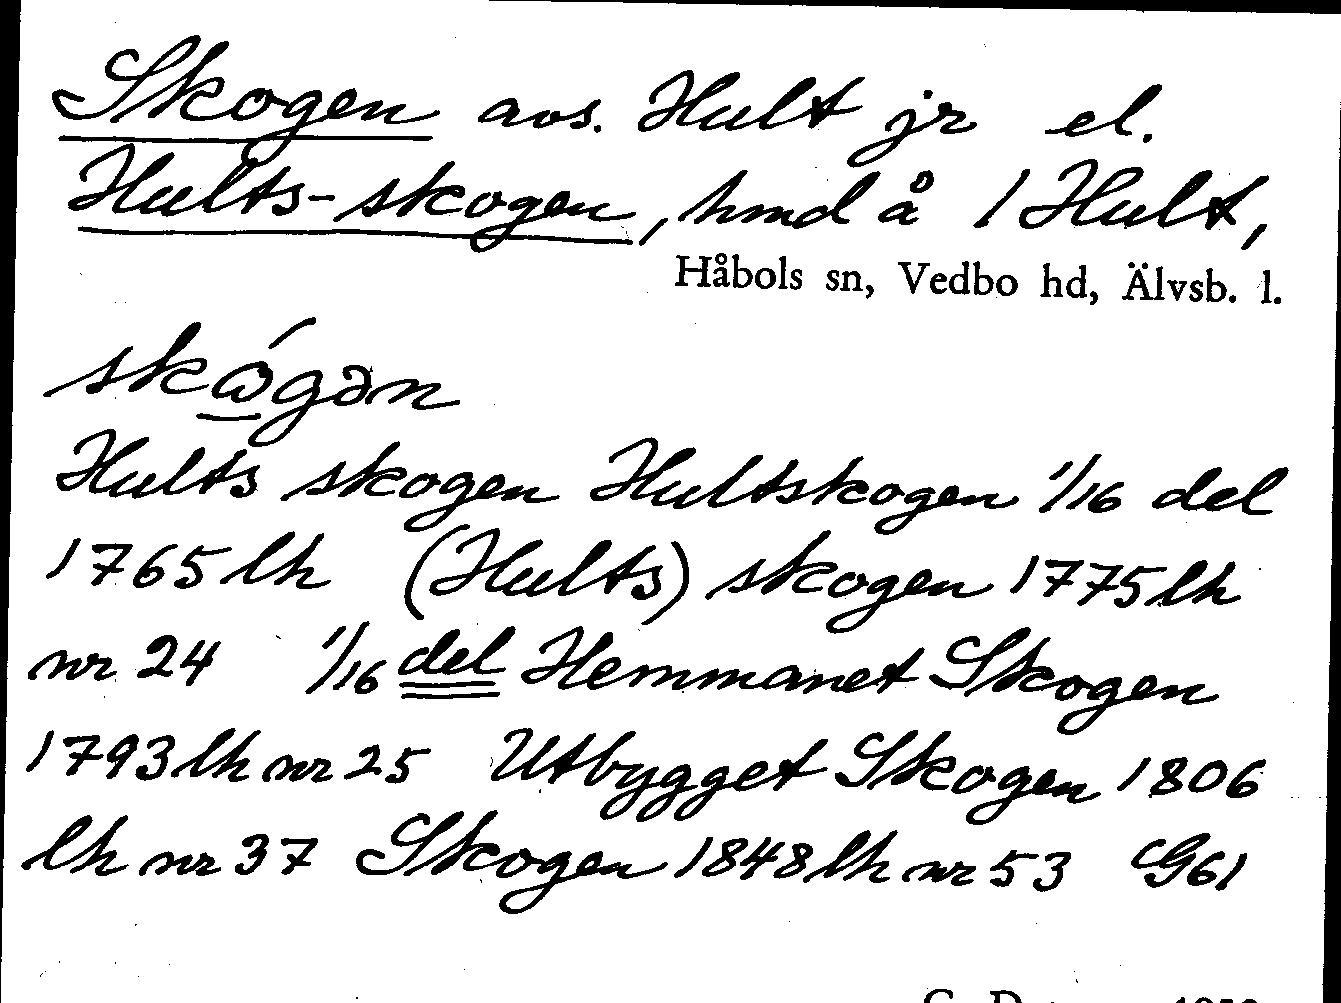 Skogen avs. Hult jr el.
Hults-skogen, hmd å 1 Hult,
Håbols sn, Vedbo hd, Älvsb. l.
skώ̲gən
Hults skogen Hultskogen 1/16 del
1765 lh (Hults) skogen 1775 lh
nr 24 1/16 del Hemmanet Skogen
1793 lh nr 25 Utbygget Skogen 1806
lh nr 37 Skogen 1848 lh nr 53 G61